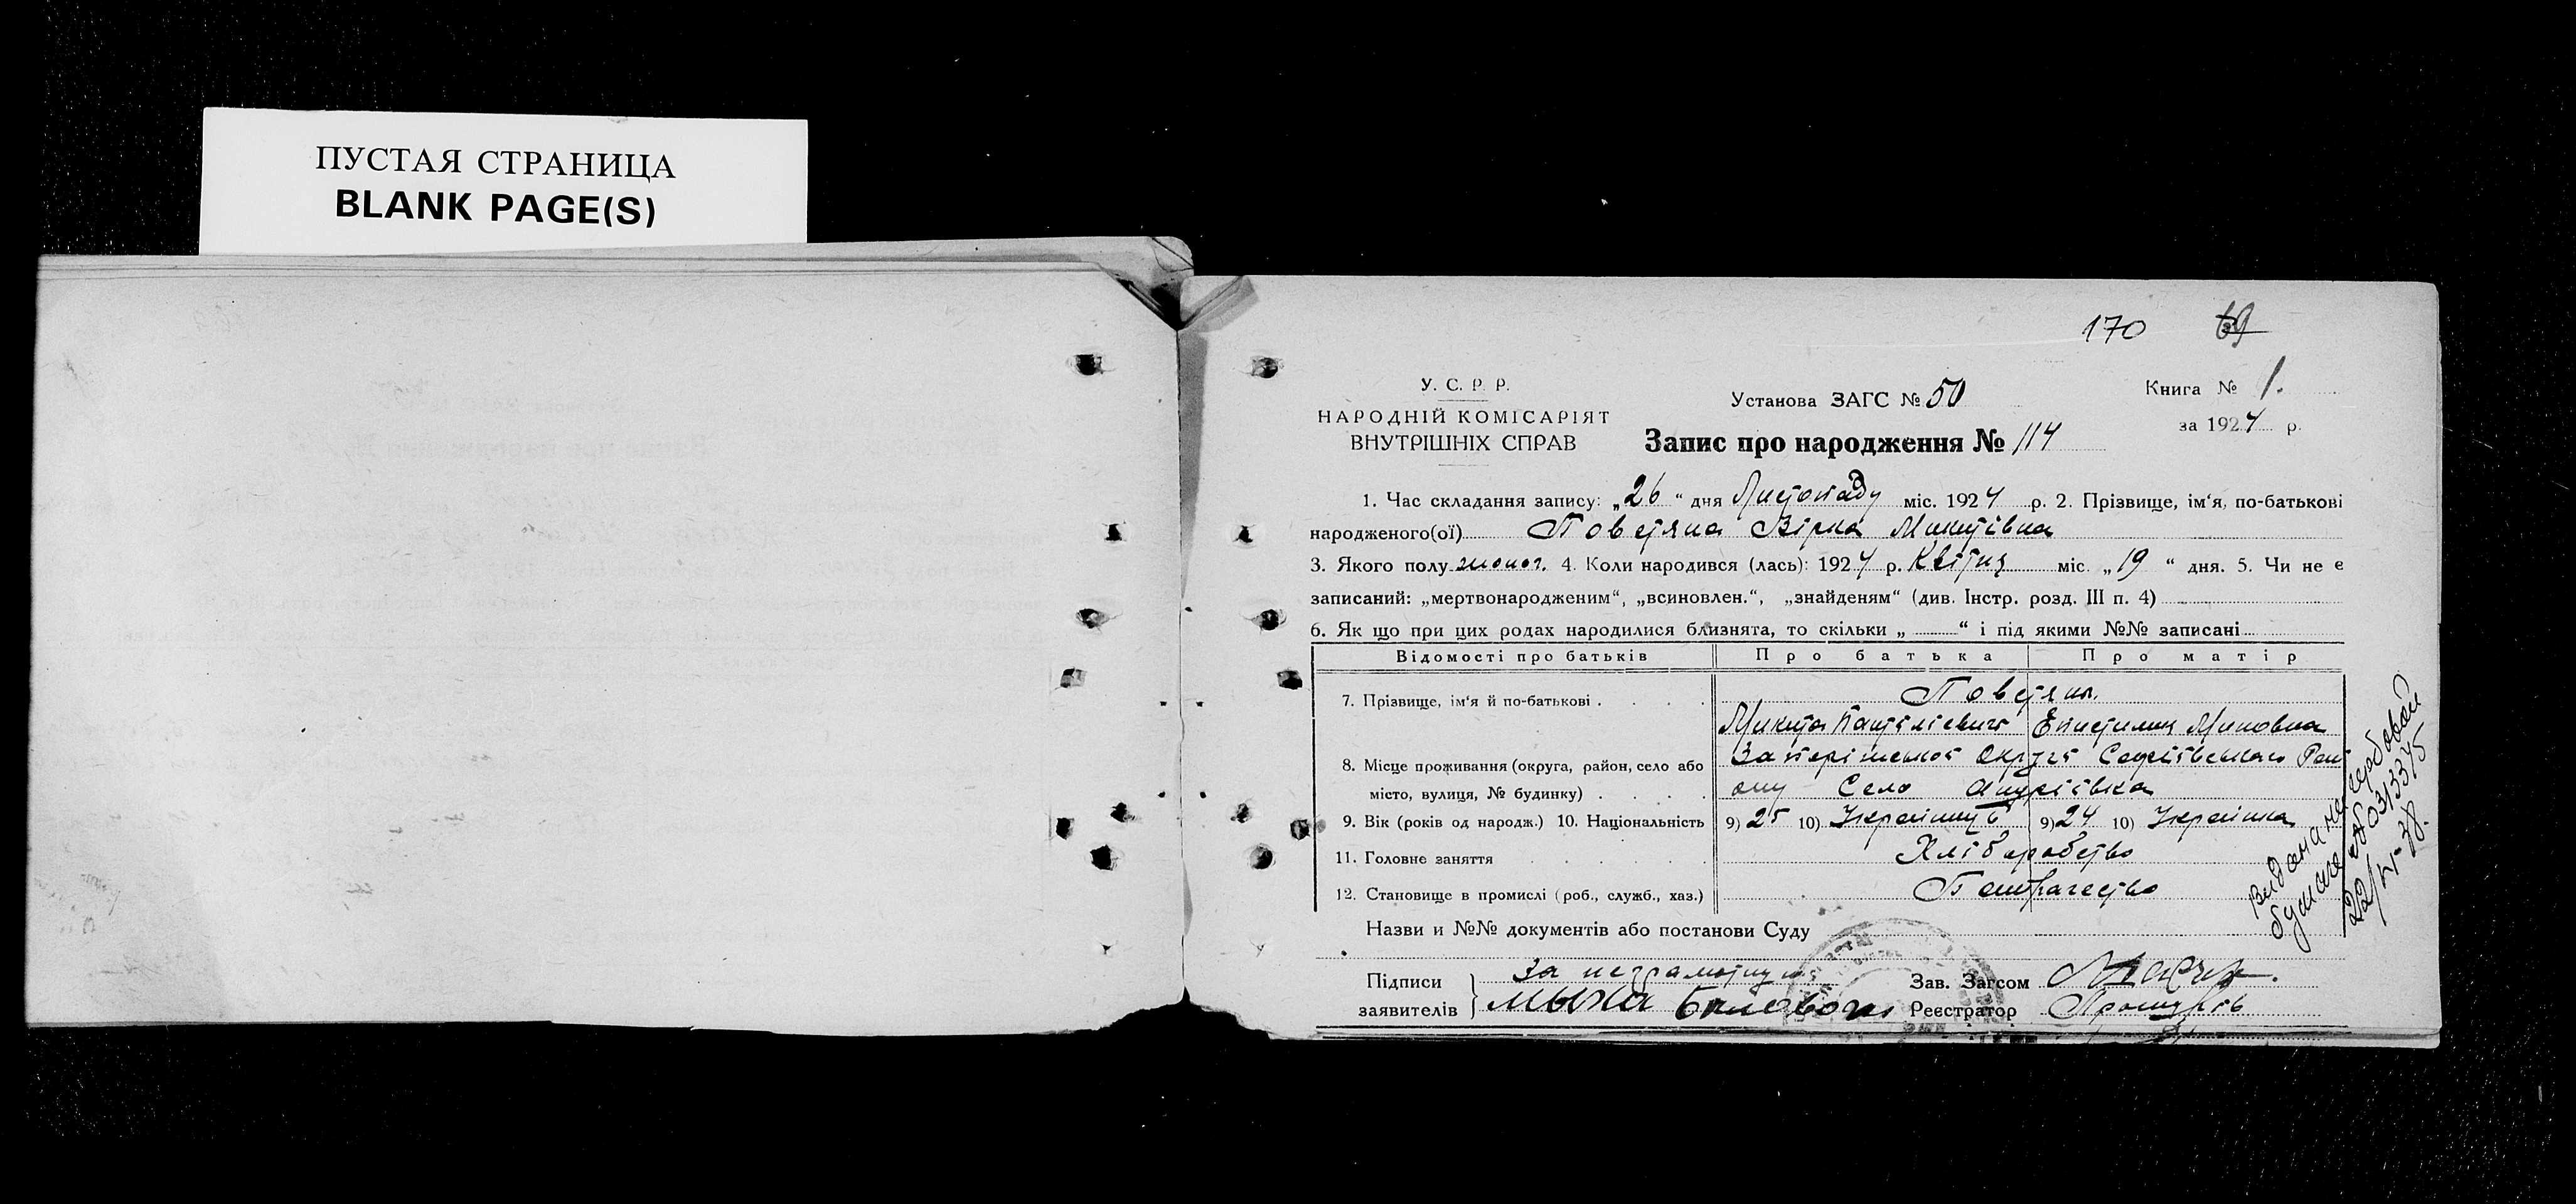 ПУСТАЯ СТРАНИЦА
BLANK PAGE(S)
170 69
У. С. Р. Р.
НАРОДНІЙ КОМІСАРІЯТ
ВНУТРІШНІХ СПРАВ
Установа ЗАГС № 50
Запис про народження № 114
Книга № 1.
за 1924 р.
1. Час складання запису: „26“ дня Листопаду міс. 1924 р. 2. Прізвище, ім‘я, по-батькові
народженого(ої) Повстяна Вірка Микитівна
3. Якого полу жіноч. 4. Коли народився (лась): 1924 р. Квітня міс. „19“ дня. 5. Чи не є
записаний: „мертвонародженим“, „всиновлен.“, „знайденям“ (див. Інстр. розд. III п. 4)
6. Як що при цих родах народилися близнята, то скільки „ “ і під якими №№ записані
Відомості про батьків Про батька Про матір
7. Прізвище, ім‘я й по-батькові Повстяни.
Микита Панталієвич
8. Місце проживання (округа, район, село або Запоріжської Округи Софіївського Рай
місто, вулиця, № будинку) ону Село Андріівка
9. Вік (років од народж.) 10. Національність 9) 25 10) Украінець 9) 24 10) Украінка
11. Головне заняття Хліборобство
12. Становище в промислі (роб., служб., хаз.)
Назви и №№ документів або постанови Суду
Підписи За неграмотну
заявителів
Зав. Загсом
Реєстратор
Видана на гербовой
бумаге № 0313375
22/IV-38.